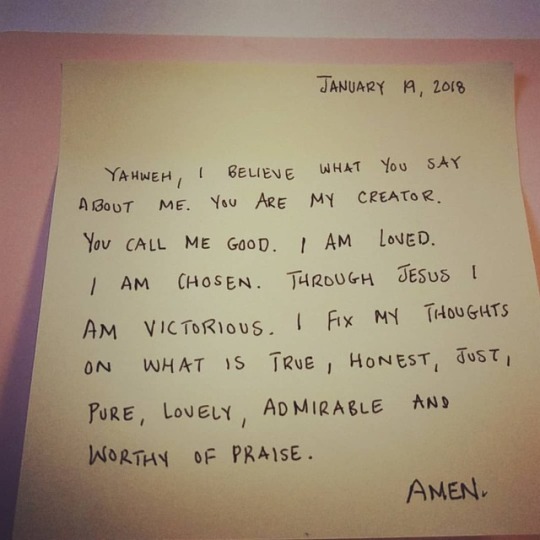 JANUARY 19, 2018
YAHWEH, I BELIEVE WHAT YOU SAY
ABOUT ME. YOU ARE MY CREATOR.
YOU CALL ME GOOD. I AM LOVED.
I AM CHOSEN. THROUGH JESUS I
AM VICTORIOUS. I FIX MY THOUGHTS
ON WHAT IS TRUE, HONEST, JUST,
PURE, LOVELY, ADMIRABLE AND
WORTHY OF PRAISE.
AMEN.